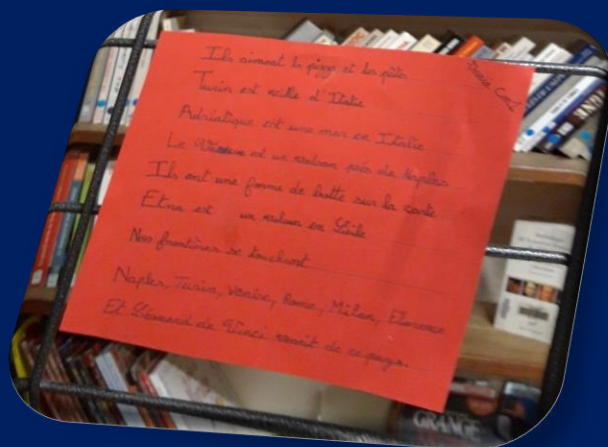 Ils aiment la pizza et les pâtes
Turin est ville d'Italie
Adriatique est une mer en Italie
Le Vésuve est un volcan près de Naples
Ils ont une forme de botte sur la carte
Etna est un volcan en Sicile
Nos frontières se touchent
Naples, Turin, Venise, Rome, Milan, Florence
Et Léonard de Vinci venait de ce pays.
GRANGE